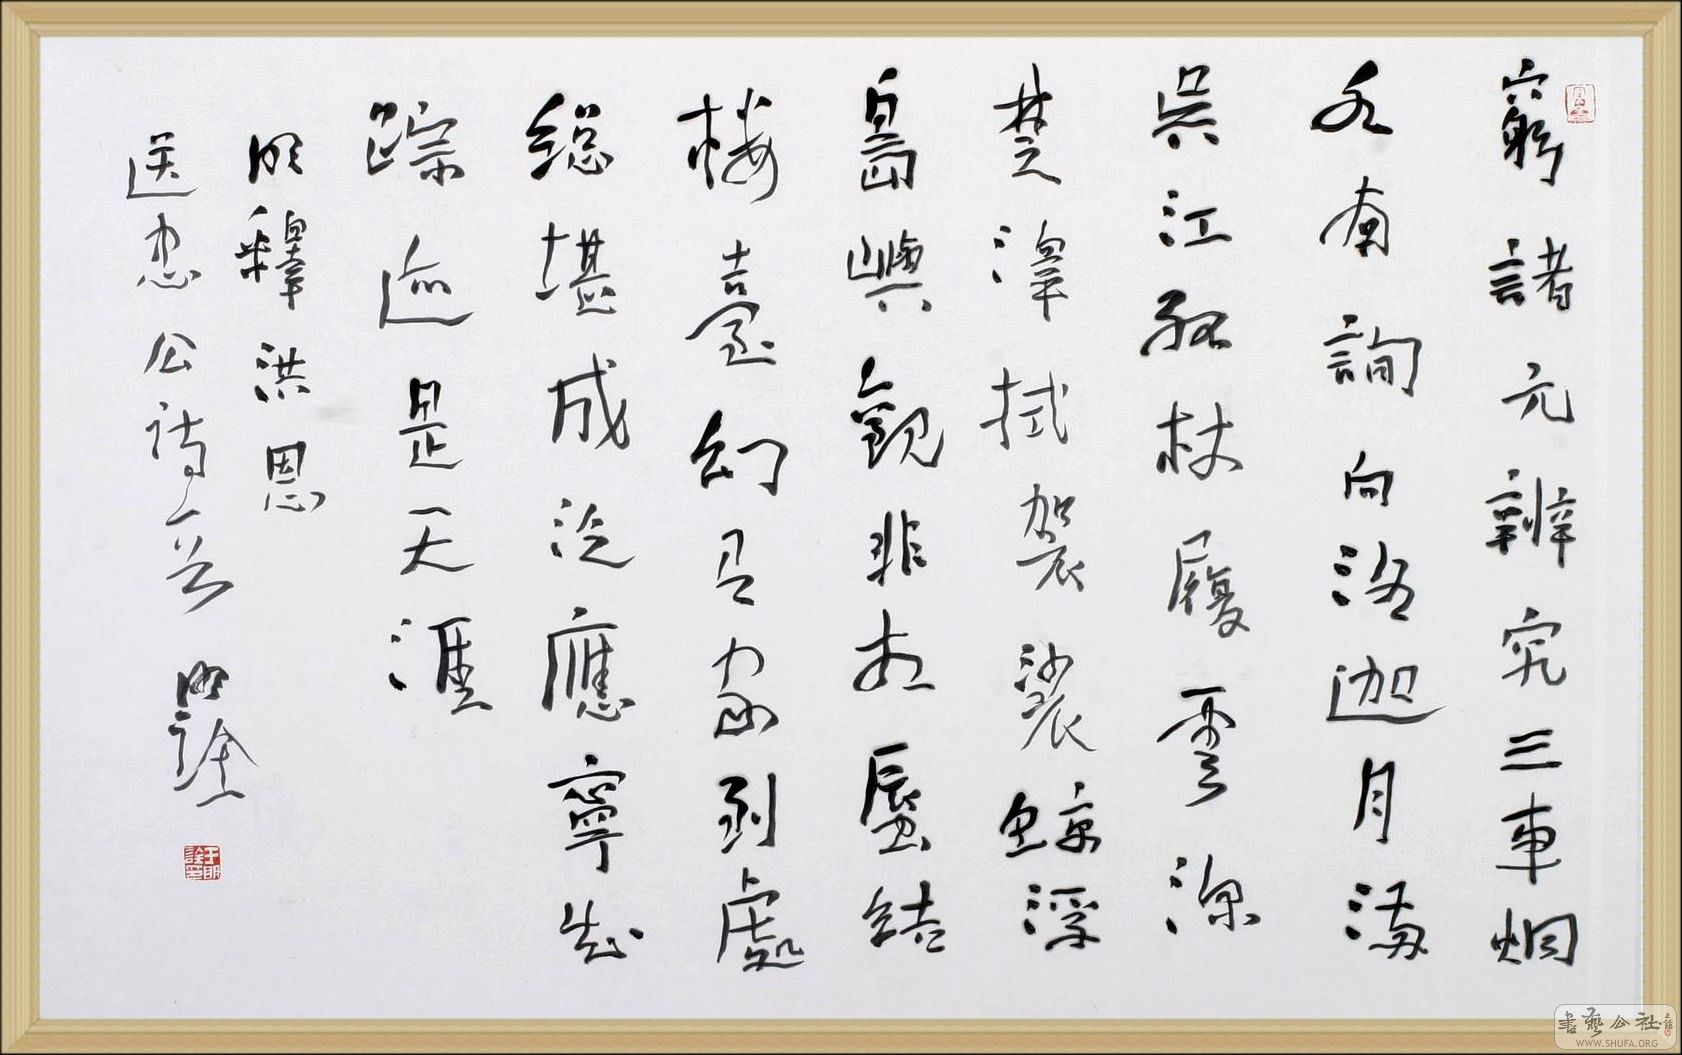 窮諸元辨究三車烟
水南詢向洛迦月滿
吳江孤杖履雲深
楚澤拭袈裟鯨浮
島嶼觀非相蜃結
樓臺幻家到處
總堪成泛應寧知
踪迹是天涯
明釋洪恩
送忠公詩一首 明詮
于明詮印
書藝公社
WWW.SHUFA.ORG